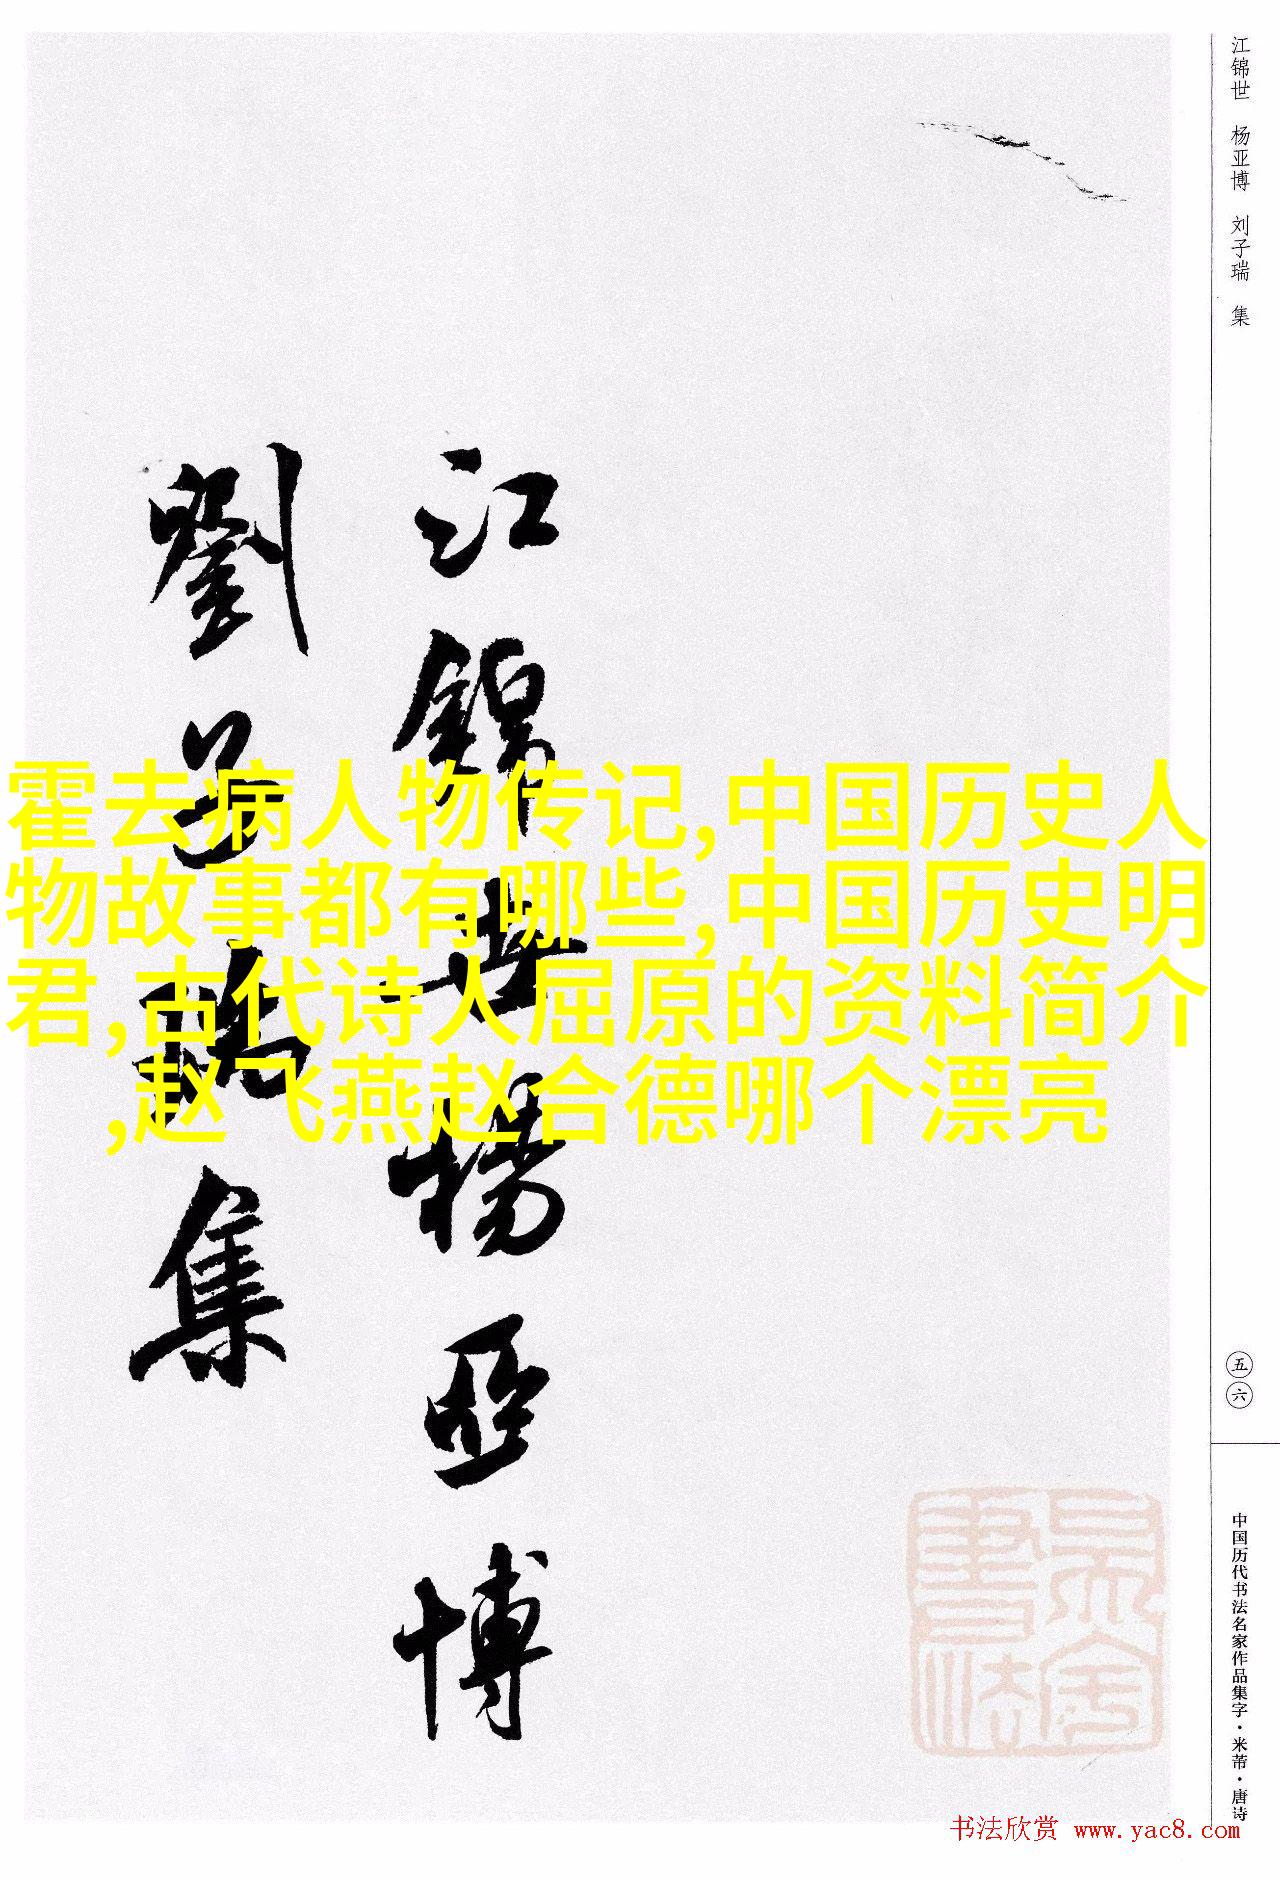 江锦世 杨亚博 刘子瑞 集
江錦世楊亞博
劉子瑞集
霍去病人物传记,中国历史人
物故事都有哪些,中国历史明
君,古代诗人屈原的资料简介
,赵飞燕赵合德哪个漂亮
五六
中国历代书法名家作品集字·米芾·唐诗
书法欣赏 www.yac8.com